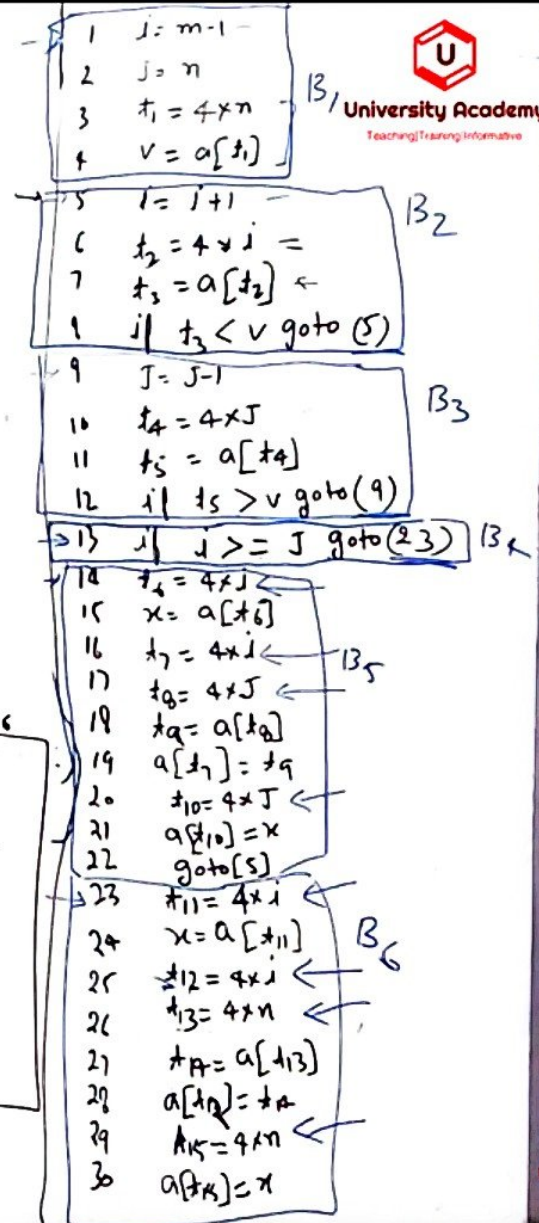 1 i = m-1
2 J = n
3 t1 = 4×n
4 v = a[t1]
B1
University Academy
Teaching|Training|Informative
5 i = i+1
6 t2 = 4×i
7 t3 = a[t2]
8 if t3 < v goto (5)
B2
9 J = J-1
10 t4 = 4×J
11 t5 = a[t4]
12 if t5 > v goto(9)
B3
13 if i >= J goto(23) B4
14 t6 = 4×i
15 x = a[t6]
16 t7 = 4×i
17 t8 = 4×J
18 t9 = a[t8]
19 a[t7] = t9
20 t10 = 4×J
21 a[t10] = x
22 goto[5]
B5
23 t11 = 4×i
24 x = a[t11]
25 t12 = 4×i
26 t13 = 4×n
27 t14 = a[t13]
28 a[t12] = t14
29 t15 = 4×n
30 a[t15] = x
B6
6